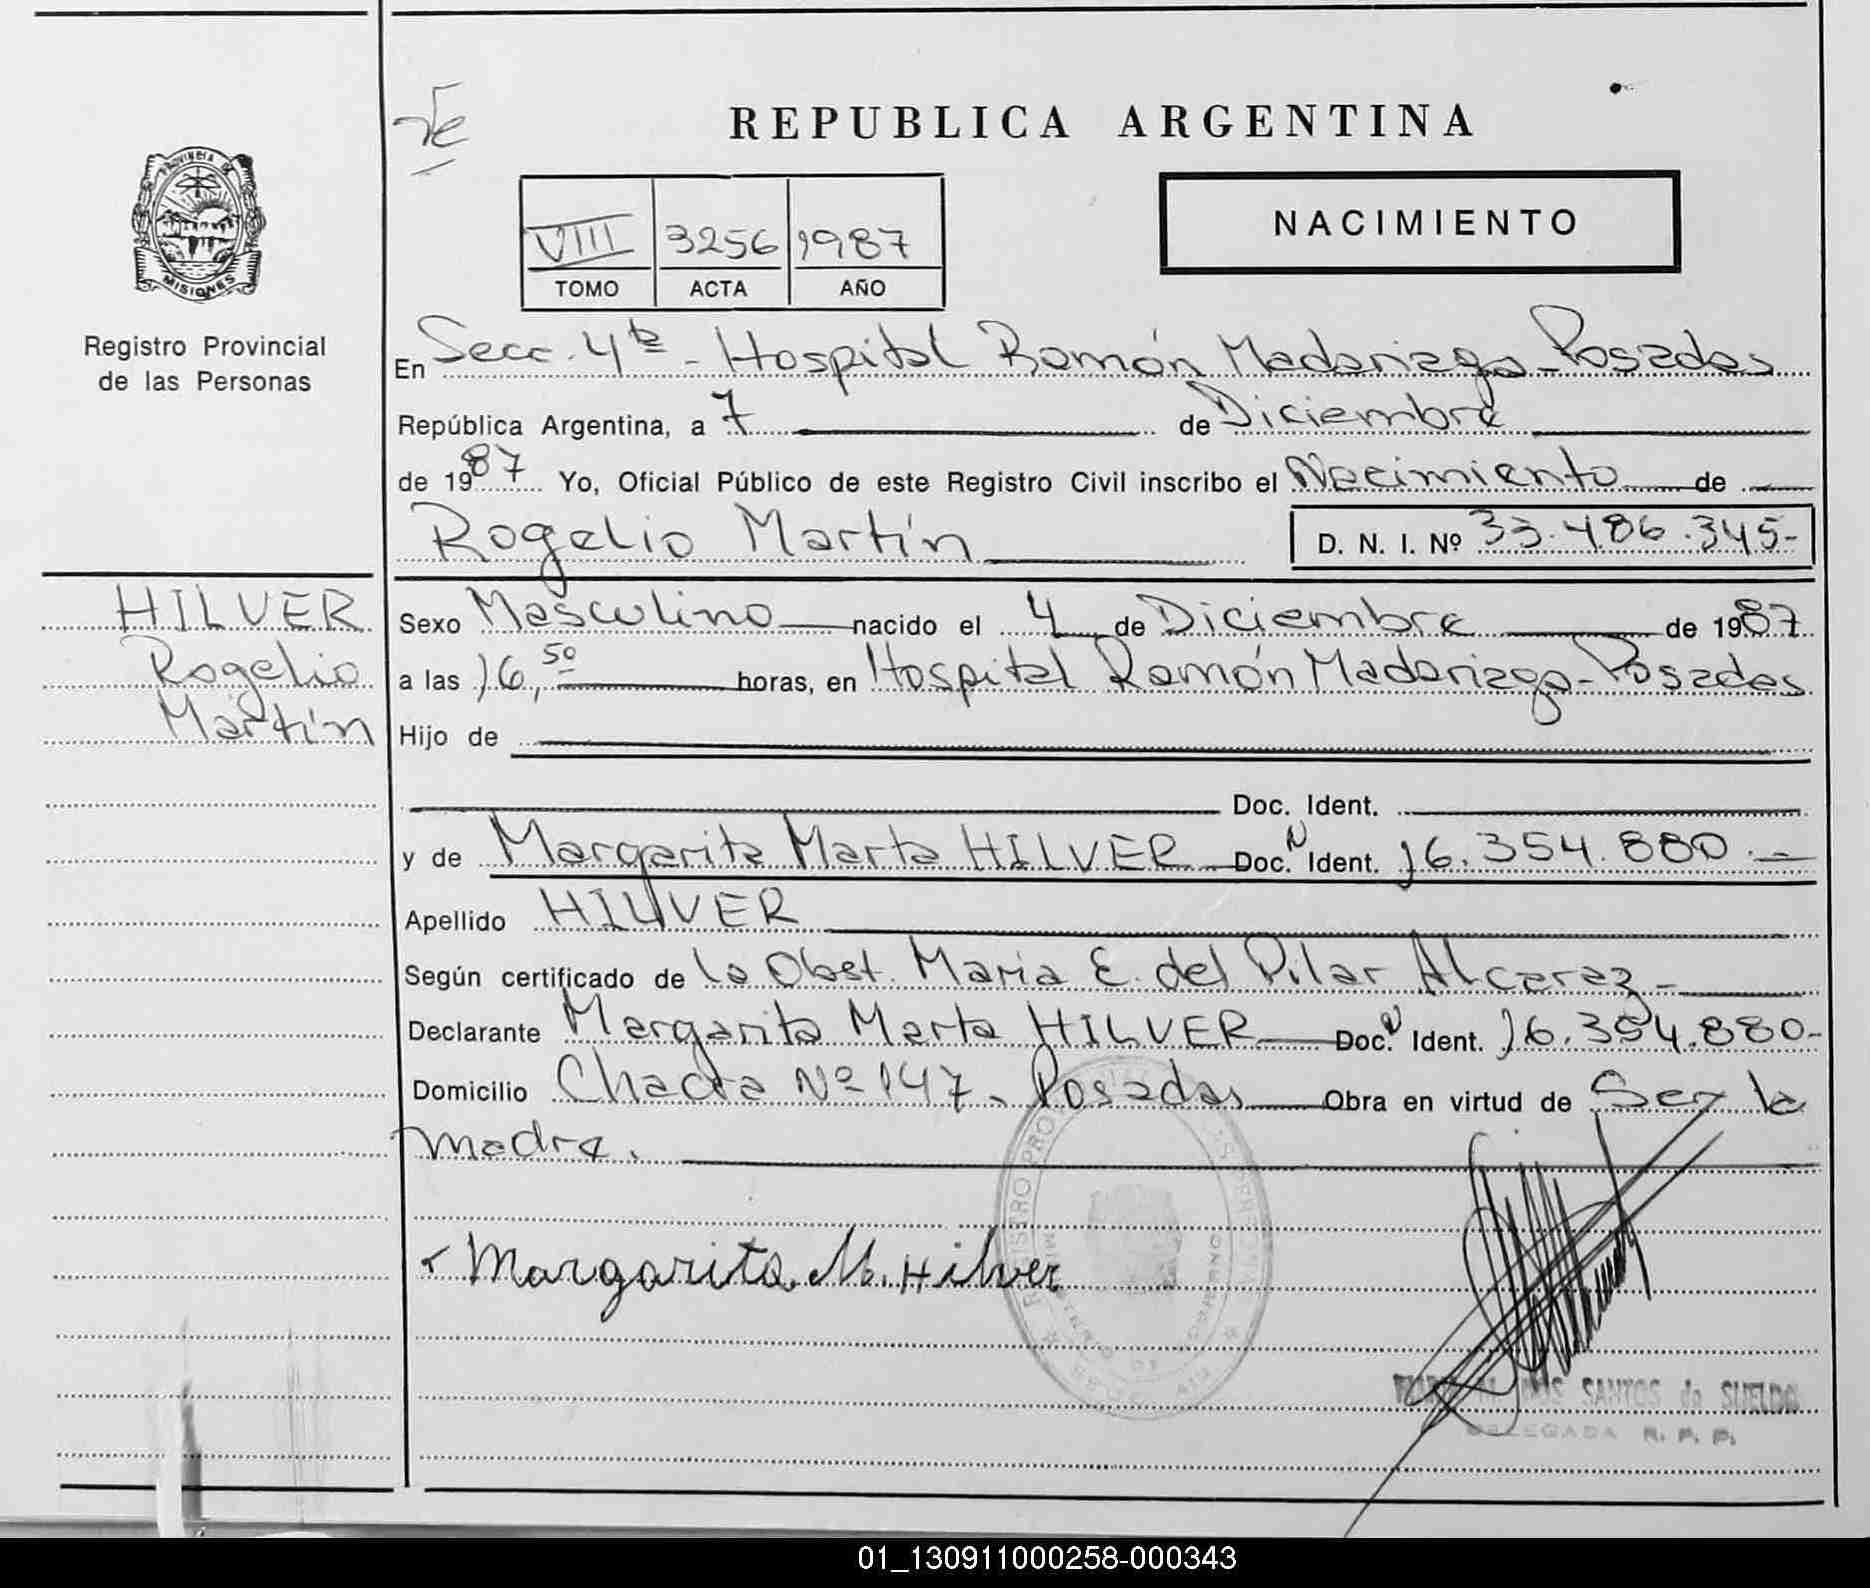 REPUBLICA ARGENTINA
PROVINCIA DE
MISIONES
Registro Provincial
de las Personas
VIII 3256 1987
TOMO ACTA AÑO
NACIMIENTO
En Secc. 4ta - Hospital Ramón Madariaga - Posadas
República Argentina, a 7 de Diciembre
de 1987 Yo, Oficial Público de este Registro Civil inscribo el Nacimiento de
Rogelio Martín D. N. I. Nº 33.486.345-
HILVER
Rogelio
Martín
Sexo Masculino nacido el 4 de Diciembre de 1987
a las 16,50 horas, en Hospital Ramón Madariaga - Posadas
Hijo de
Doc. Ident.
y de Margarita Marta HILVER Doc. N Ident. 16.354.880.-
Apellido HILVER
Según certificado de la Obst. Maria E. del Pilar Alcaraz -
Declarante Margarita Marta HILVER Doc. N Ident. 16.354.880-
Domicilio Chacra Nº 147 - Posadas Obra en virtud de Ser la
madre.
Margarita M. Hilver
SANTOS de SUELDO
DELEGADA R. P. P.
01_130911000258-000343